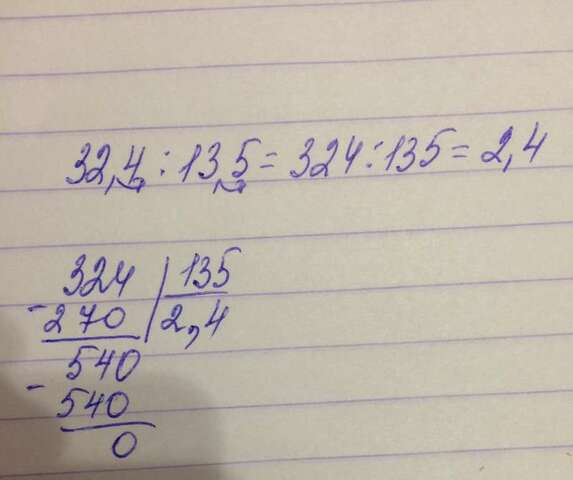 32,4 : 13,5 = 324 : 135 = 2,4
324 | 135
- 270 | 2,4
540
- 540
0